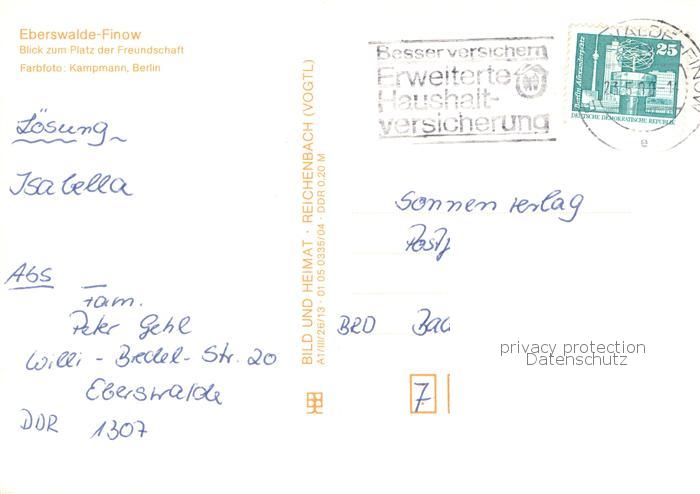 Eberswalde-Finow
Blick zum Platz der Freundschaft
Farbfoto: Kampmann, Berlin
Lösung
Isabella
Abs
Fam.
Peter Gehl
Willi-Bredel-Str. 20
Eberswalde
DDR 1307
BILD UND HEIMAT · REICHENBACH (VOGTL)
A1/III/26/13 · 01 05 0335/04 · DDR 0,20 M
Besser versichern
Erweiterte
Haushalt-
versicherung
Berlin, Alexanderplatz
25
DEUTSCHE DEMOKRATISCHE REPUBLIK
e
Sonnenverlag
Postf
BRD Bad
7
privacy protection
Datenschutz